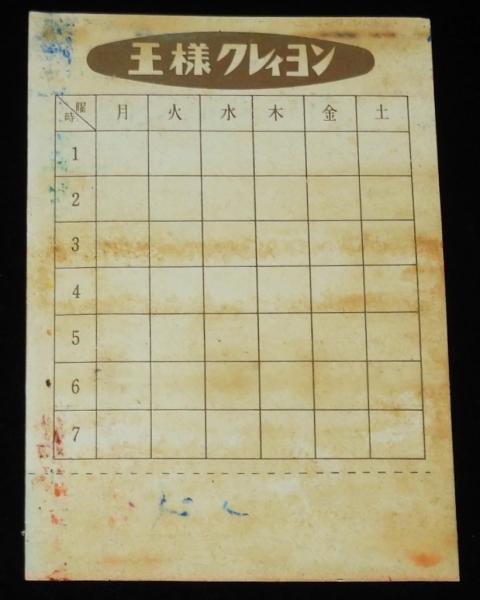 王様クレィヨン
曜 時 月 火 水 木 金 土
1
2
3
4
5
6
7